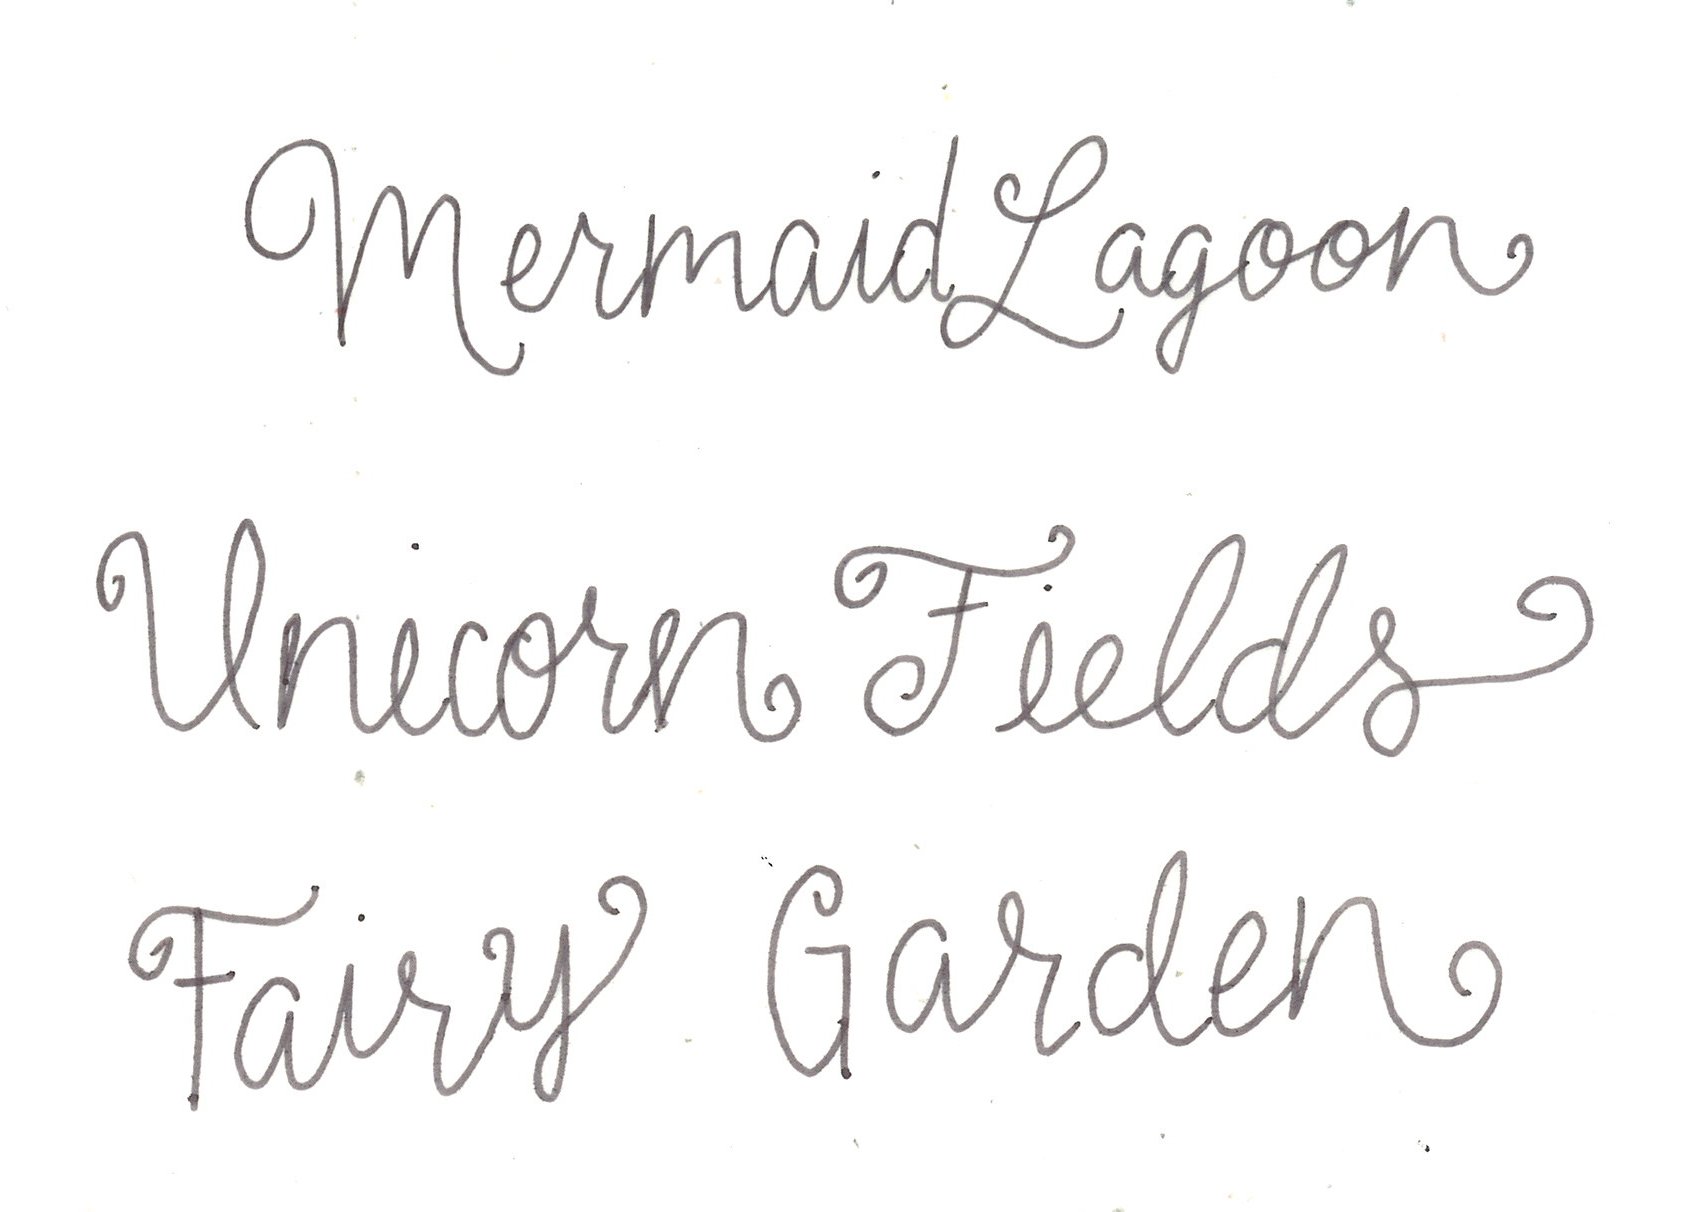 Mermaid Lagoon
Unicorn Fields
Fairy Garden